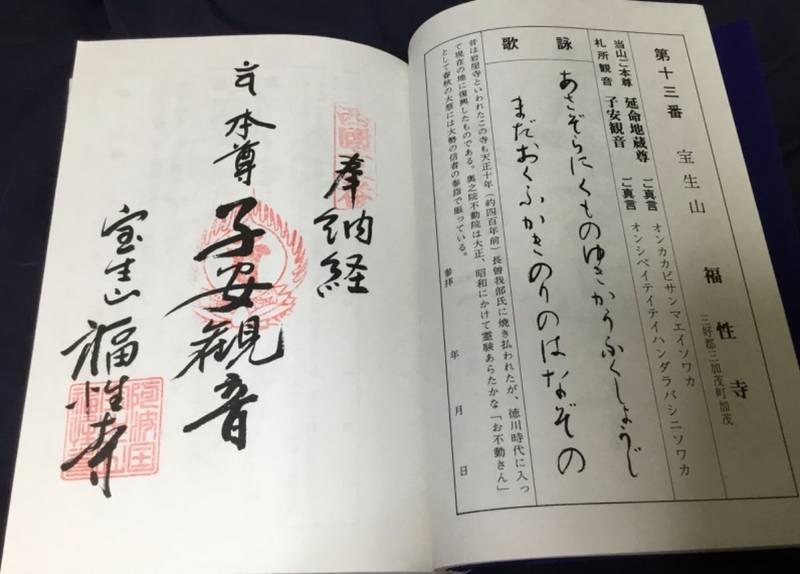 第十三番 宝生山 福性寺
三好郡三加茂町加茂
当山ご本尊 延命地蔵尊 ご真言 オンカカカビサンマエイソワカ
札所観音 子安観音 ご真言 オンシベイテイテイハンダラバシニソワカ
詠歌
あさぞらにくものゆきかうふくしょうじ
まだおくふかきのりのはなぞの
昔は岩屋寺といわれたこの寺も天正十年（約四百年前）長曽我部氏に焼き払われたが、徳川時代に入っ
て現在の地に復興したものである。奥之院不動院は大正、昭和にかけて霊験あらたかな「お不動さん」
として春秋の大祭には大勢の信者の参詣で賑っている。
参拝 年 月 日
奉納経
本尊
子安観音
宝生山
福性寺
阿波国